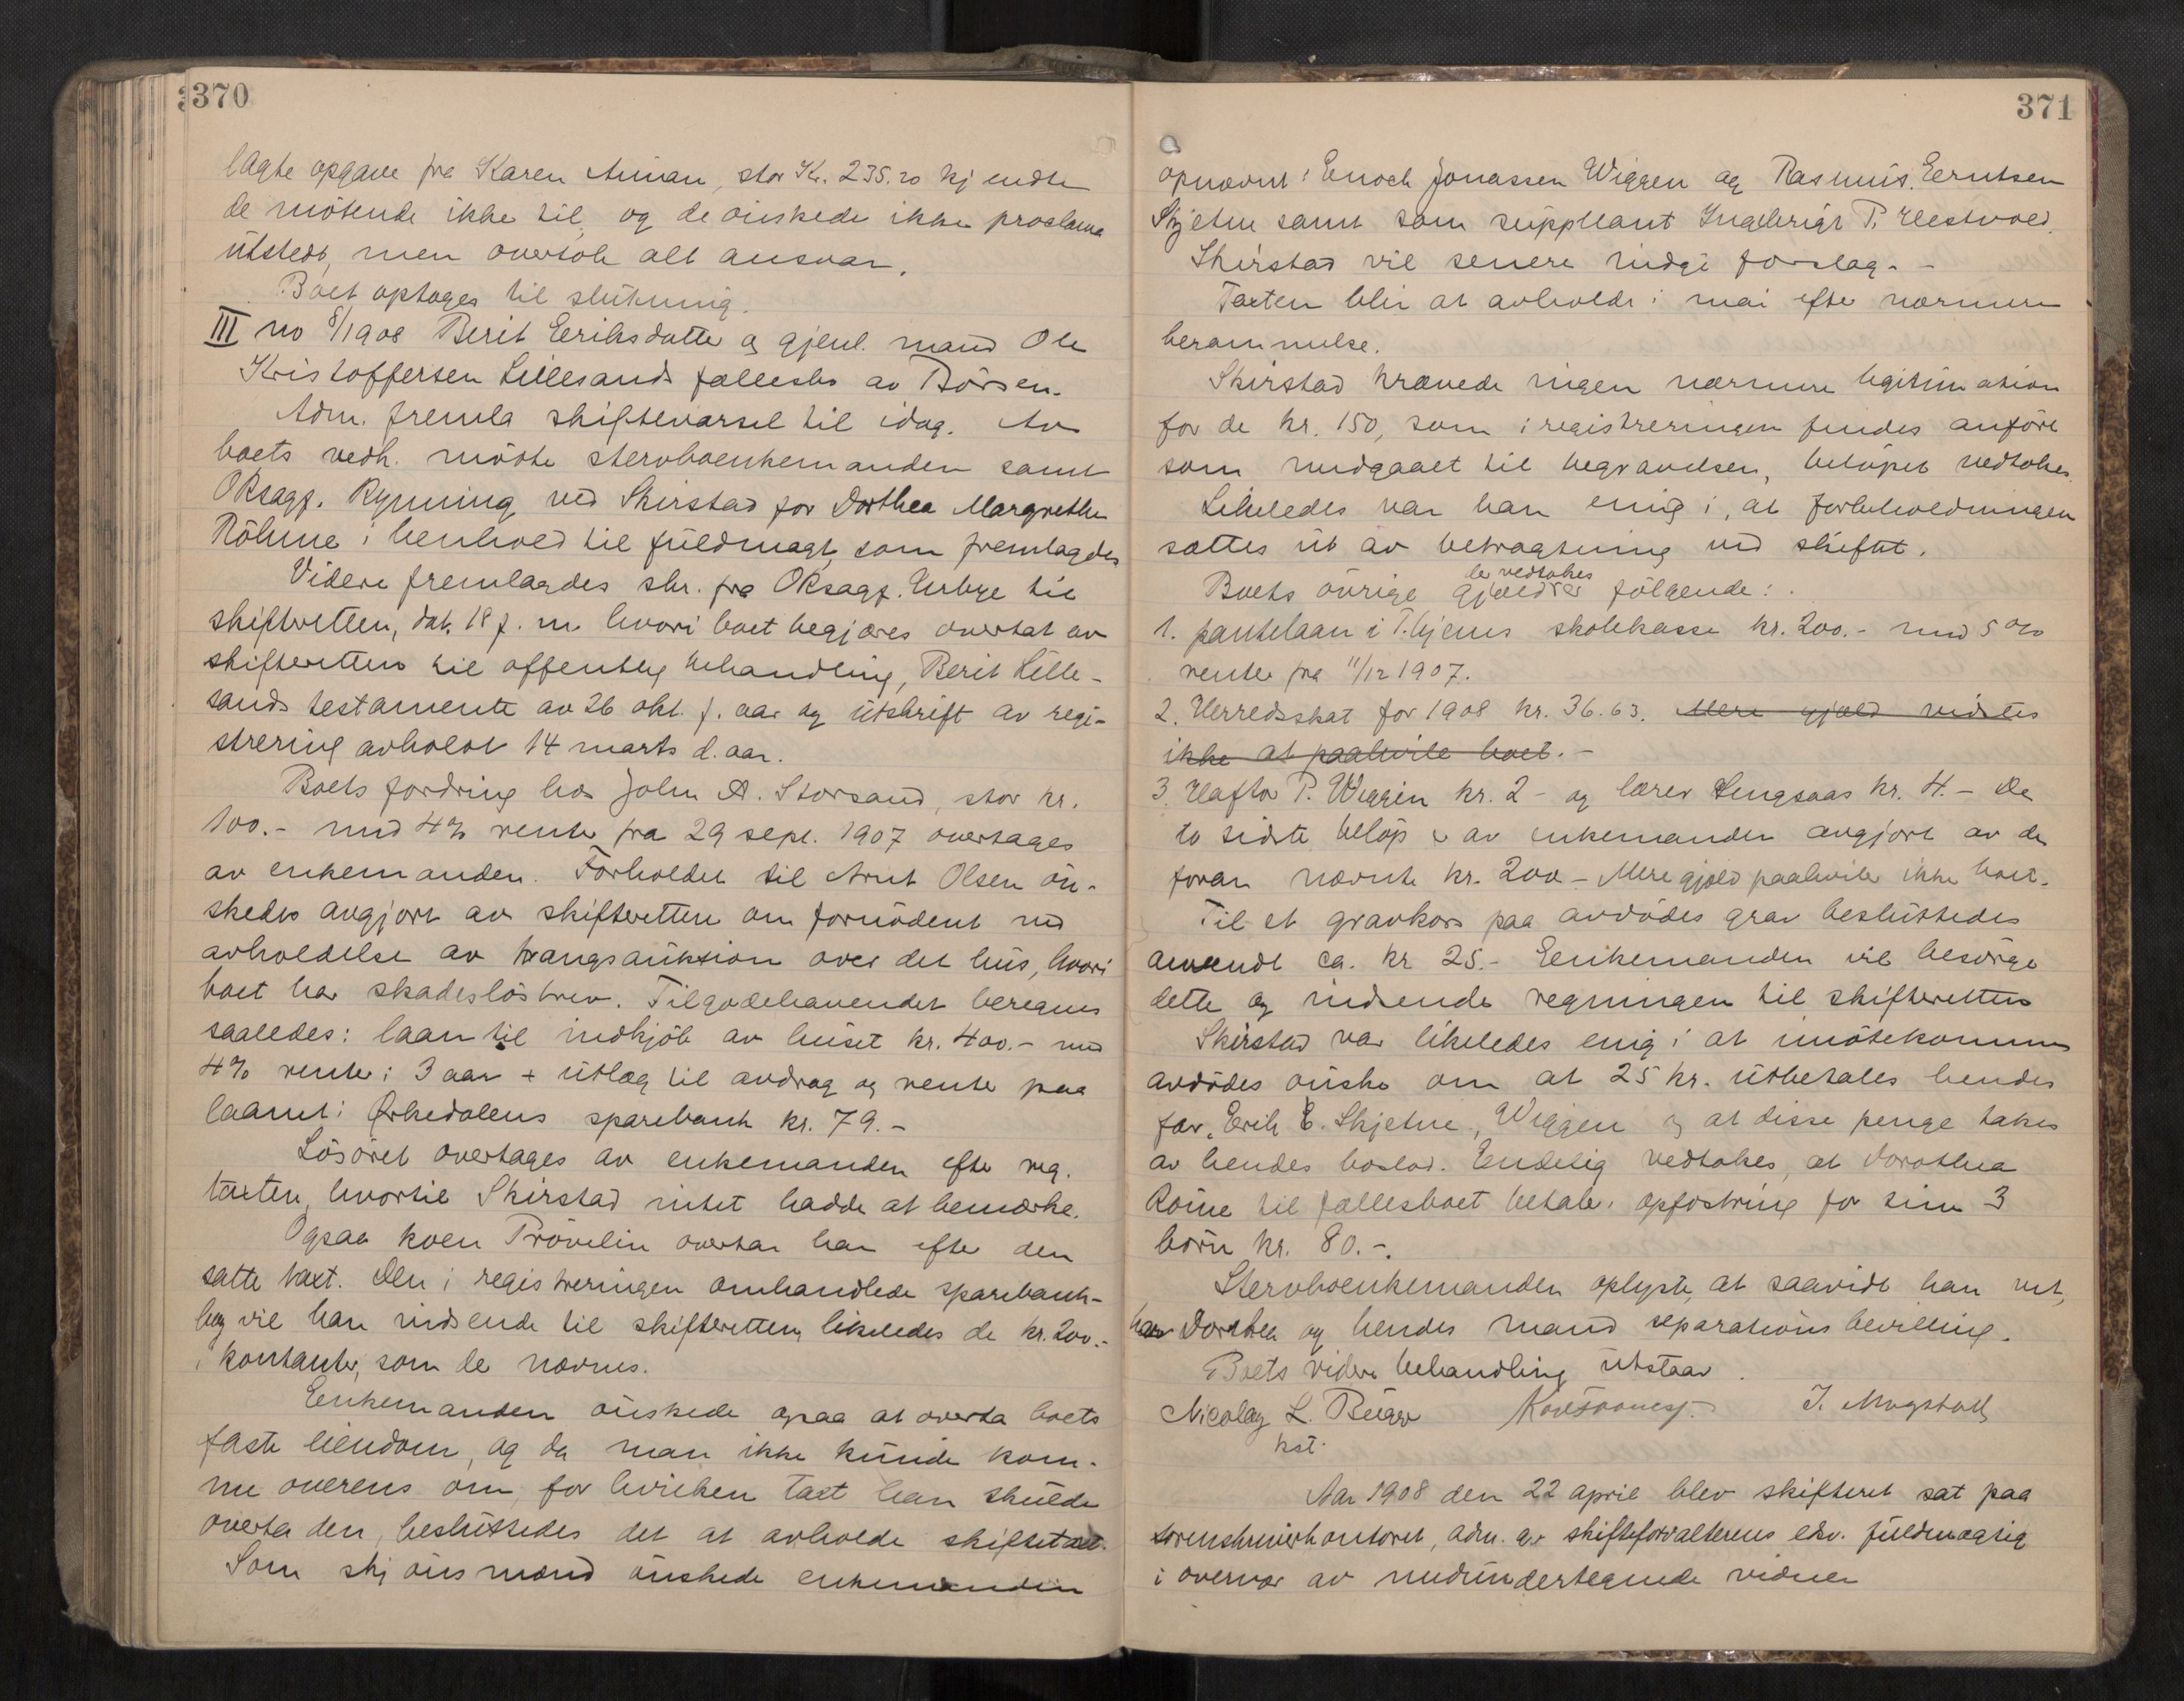 370
lagte opgave fra Karen Aunan, stor Kr. 235.20 kjendte
de mötende ikke til, og de önskede ikke proclama
utstedt, men overtok alt ansvar.
Boet optages til slutning.
III no 8/1908 Berit Eriksdatter og gjenl. mand Ole
Kristoffersen Lillesands fællesbo av Börsen.
Adm. fremla skiftevarsel til idag. Av
boets vedk. mödte stervboenkemanden samt
ORsagf. Rynning ved Skirstad for Dorthea Margrethe
Röhme i henhold til fuldmagt, som fremlagdes
Videre fremlagdes skr. fra ORsagf. Urbye til
skifteretten, dat. 18 f. m. hvori boet begjæres overtat av
skifteretten til offentlig behandling, Berit Lille-
sands testamente av 26 okt. f. aar og utskrift av regi-
strering avholdt 14 marts d. aar.
Boets fordring hos John A. Storsand, stor kr.
100.- med 4% rente fra 29 sept. 1907 overtages
av enkemanden. Forholdet til Arnt Olsen ön-
skedes avgjort av skifteretten om fornödent ved
avholdelse av tvangsauktion over det hus, hvori
boet har skadeslösbrev. Tilgodehavendet beregnes
saaledes: laan til indkjöb av huset kr. 400.- med
4% rente i 3 aar + utlæg til avdrag og rente paa
laanet i Ørkedalens sparebank kr. 79.-
Lösöret overtages av enkemanden efter reg.
taxten, hvortil Skirstad intet hadde at bemærke.
Ogsaa koen Prövelin overtar han efter den
satte taxt. Den i registreringen omhandlede sparebank-
bog vil han indsende til skifteretten, likeledes de kr. 200.-
i kontanter, som der nævnes.
Enkemanden önskede ogsaa at overta boets
faste eiendom, og da man ikke kunde kom-
me overens om, for hvilken taxt han skulde
overta den, besluttedes det at avholde skiftetaxt.
Som skjönsmænd önskede enkemanden
371
opnævnt: Enoch Jonassen Wiggen og Rasmus Erntsen
Skjetne samt som suppleant Ingebrigt P. Hestvold.
Skirstad vil senere indgi forslag.-
Taxten blir at avholde i mai efter nærmere
berammelse.
Skirstad krævede ingen nærmere legitimation
for de kr. 150, som i registreringen findes anfört
som medgaaet til begravelsen, belöpet vedtokes.
Likeledes var han enig i, at forbeholdningen
sættes ut av betragtning ved skiftet.
Boets övrige gjæld er følgende:
der vedtokes
1. pantelaan i T.hjems skolekasse kr. 200.- med 5%
rente fra 11/12 1907.
2. Herredsskat for 1908 kr. 36.63. Mere gjæld vidstes
ikke at paahvile boet.-
3. Haftor P. Wiggen kr. 2 - og lærer Lengsaas kr. 4.- De
to sidste belöp er av enkemanden avgjort av de
foran nævnte kr. 200 - Mere gjæld paahviler ikke boet.
Til et gravkors paa avdödes grav besluttedes
anvendt ca. kr 25.- Enkemanden vil besörge
dette og indsende regningen til skifteretten
Skirstad var likeledes enig i at imötekomme
avdödes önske om at 25 kr. utbetales hendes
far, Erik E. Skjetne, Wiggen og at disse penge takes
av hendes boslod. Endelig vedtokes, at Dorothea
Röine til fællesboet betaler i opfostring for sine 3
börn kr. 80.-.
Stervboenkemanden oplyste, at saavidt han vet,
har Dorthea og hendes mand separationsbevilling.
Boets videre behandling utstaar.
Nicolay L. Bugge I. Mogstad
kst.
Aar 1908 den 22 april blev skifteret sat paa
sorenskriverkontoret, adm. av skifteforvalterens edsv. fuldmægtig
i overvær av medundertegnede vidner